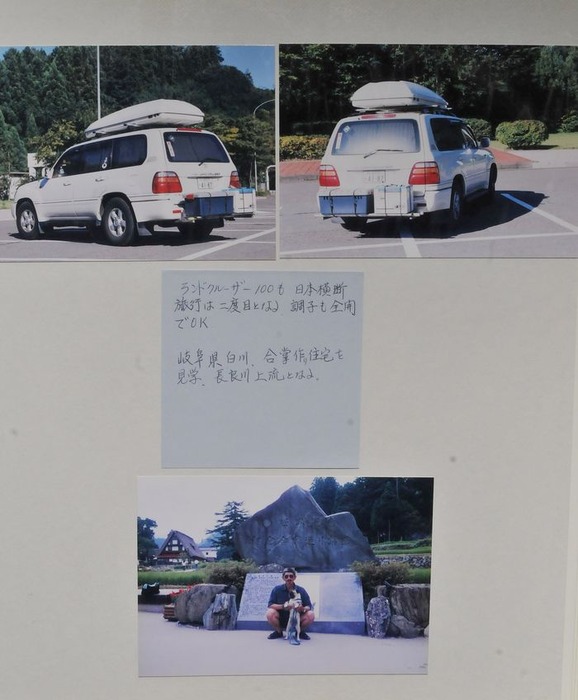 ランドクルーザー100も 日本横断
旅行は二度目となる 調子も全開
でOK
岐阜県白川、合掌作住宅を
見学、長良川上流となる。